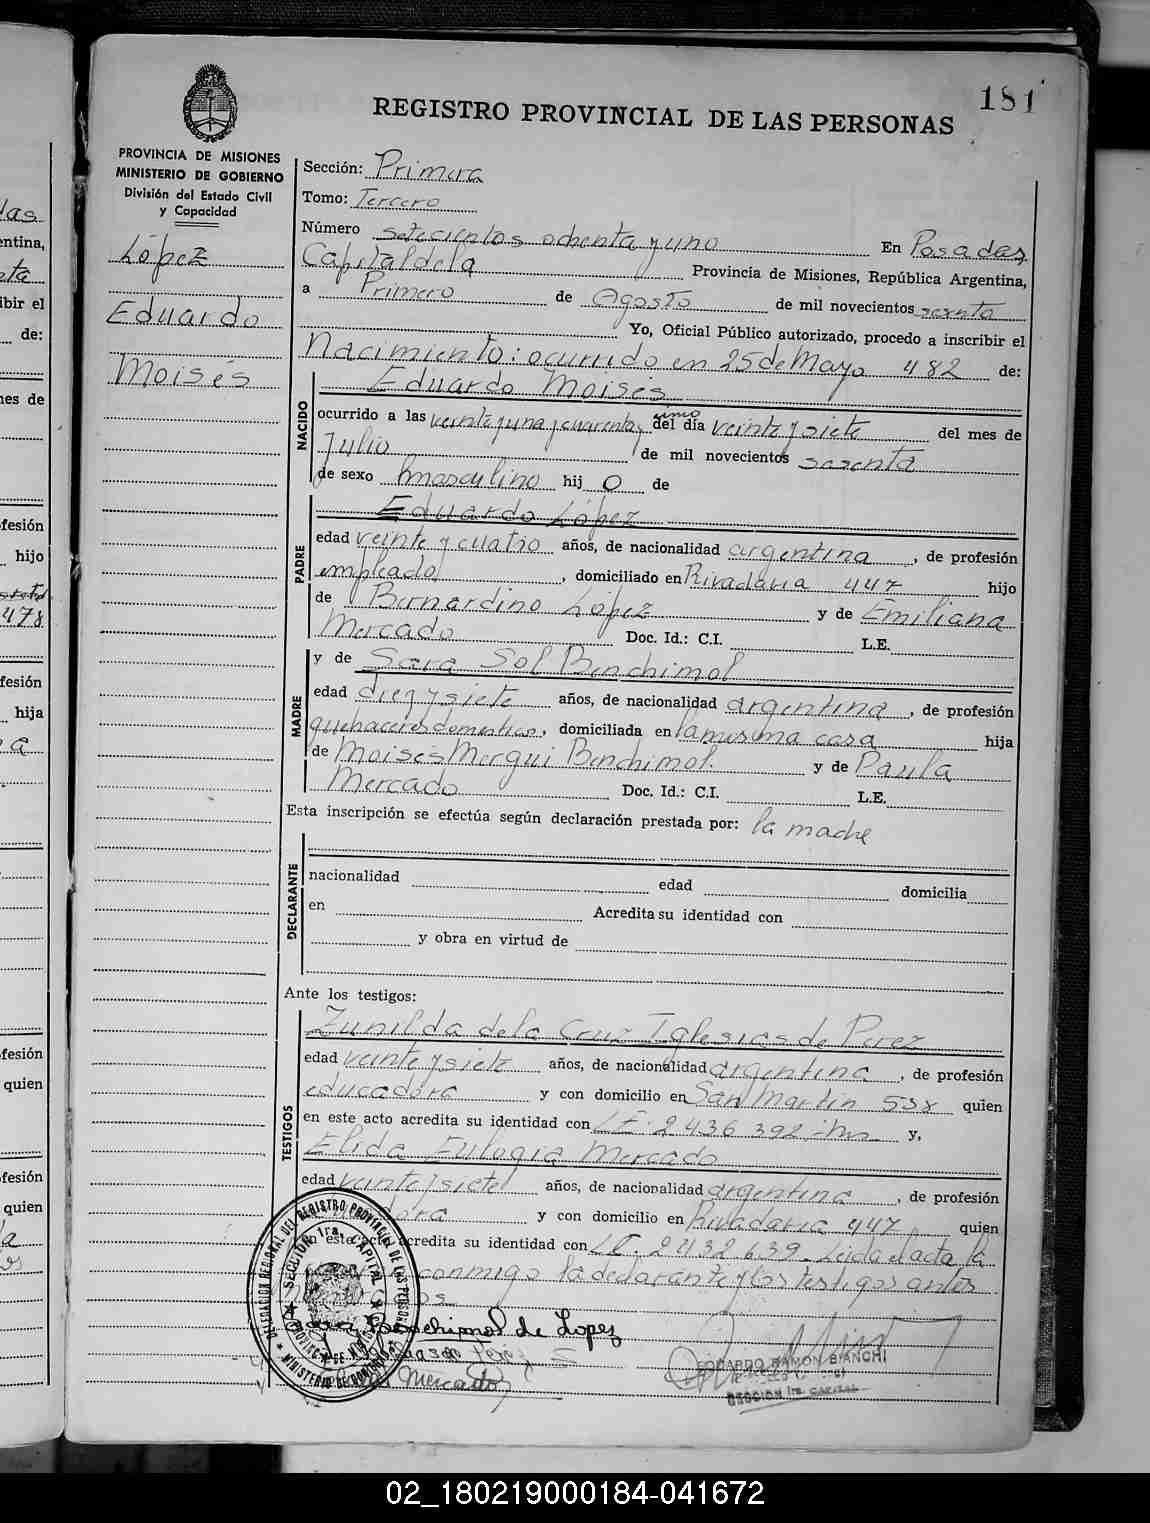 181
REGISTRO PROVINCIAL DE LAS PERSONAS
PROVINCIA DE MISIONES
MINISTERIO DE GOBIERNO
División del Estado Civil
y Capacidad
López
Eduardo
Moisés
Sección: Primera
Tomo: Tercero
Número setecientos ochenta y uno En Posadas
Capital de la Provincia de Misiones, República Argentina,
a Primero de Agosto de mil novecientos sesenta
Yo, Oficial Público autorizado, procedo a inscribir el
Nacimiento: ocurrido en 25 de Mayo 482 de:
NACIDO
Eduardo Moisés
ocurrido a las veintiuna y cuarenta y uno del día veinte y siete del mes de
Julio de mil novecientos sesenta
de sexo masculino hijo de
PADRE
Eduardo López
edad veinte y cuatro años, de nacionalidad argentina, de profesión
empleado, domiciliado en Rivadavia 447 hijo
de Bernardino López y de Emiliana
Mercado Doc. Id.: C.I. L.E.
MADRE
y de Sara Sol Benchimol
edad diez y siete años, de nacionalidad argentina, de profesión
quehaceres domesticos, domiciliada en la misma casa hija
de Moisés Mergui Benchimol y de Paula
Mercado Doc. Id.: C.I. L.E.
Esta inscripción se efectúa según declaración prestada por: la madre
DECLARANTE
nacionalidad edad domicilia
en Acredita su identidad con
y obra en virtud de
Ante los testigos:
TESTIGOS
Zunilda de la Cruz Iglesias de Perez
edad veinte y siete años, de nacionalidad argentina, de profesión
educadora y con domicilio en San Martin 538 quien
en este acto acredita su identidad con L E. 2 436 392 y,
Elida Eulogia Mercado
edad veinte y siete años, de nacionalidad argentina, de profesión
y con domicilio en Rivadavia 447 quien
en este acto acredita su identidad con L E. 2432.639. Leida el acta la
conmigo la declarante y los testigos antes
Benchimol de Lopez
Mercado
EDUARDO RAMON BIANCHI
SECCION 1ra CAPITAL
DELEGACION REGIONAL DEL REGISTRO PROVINCIAL DE LAS PERSONAS
SECCION 1ra. CAPITAL
02_180219000184-041672